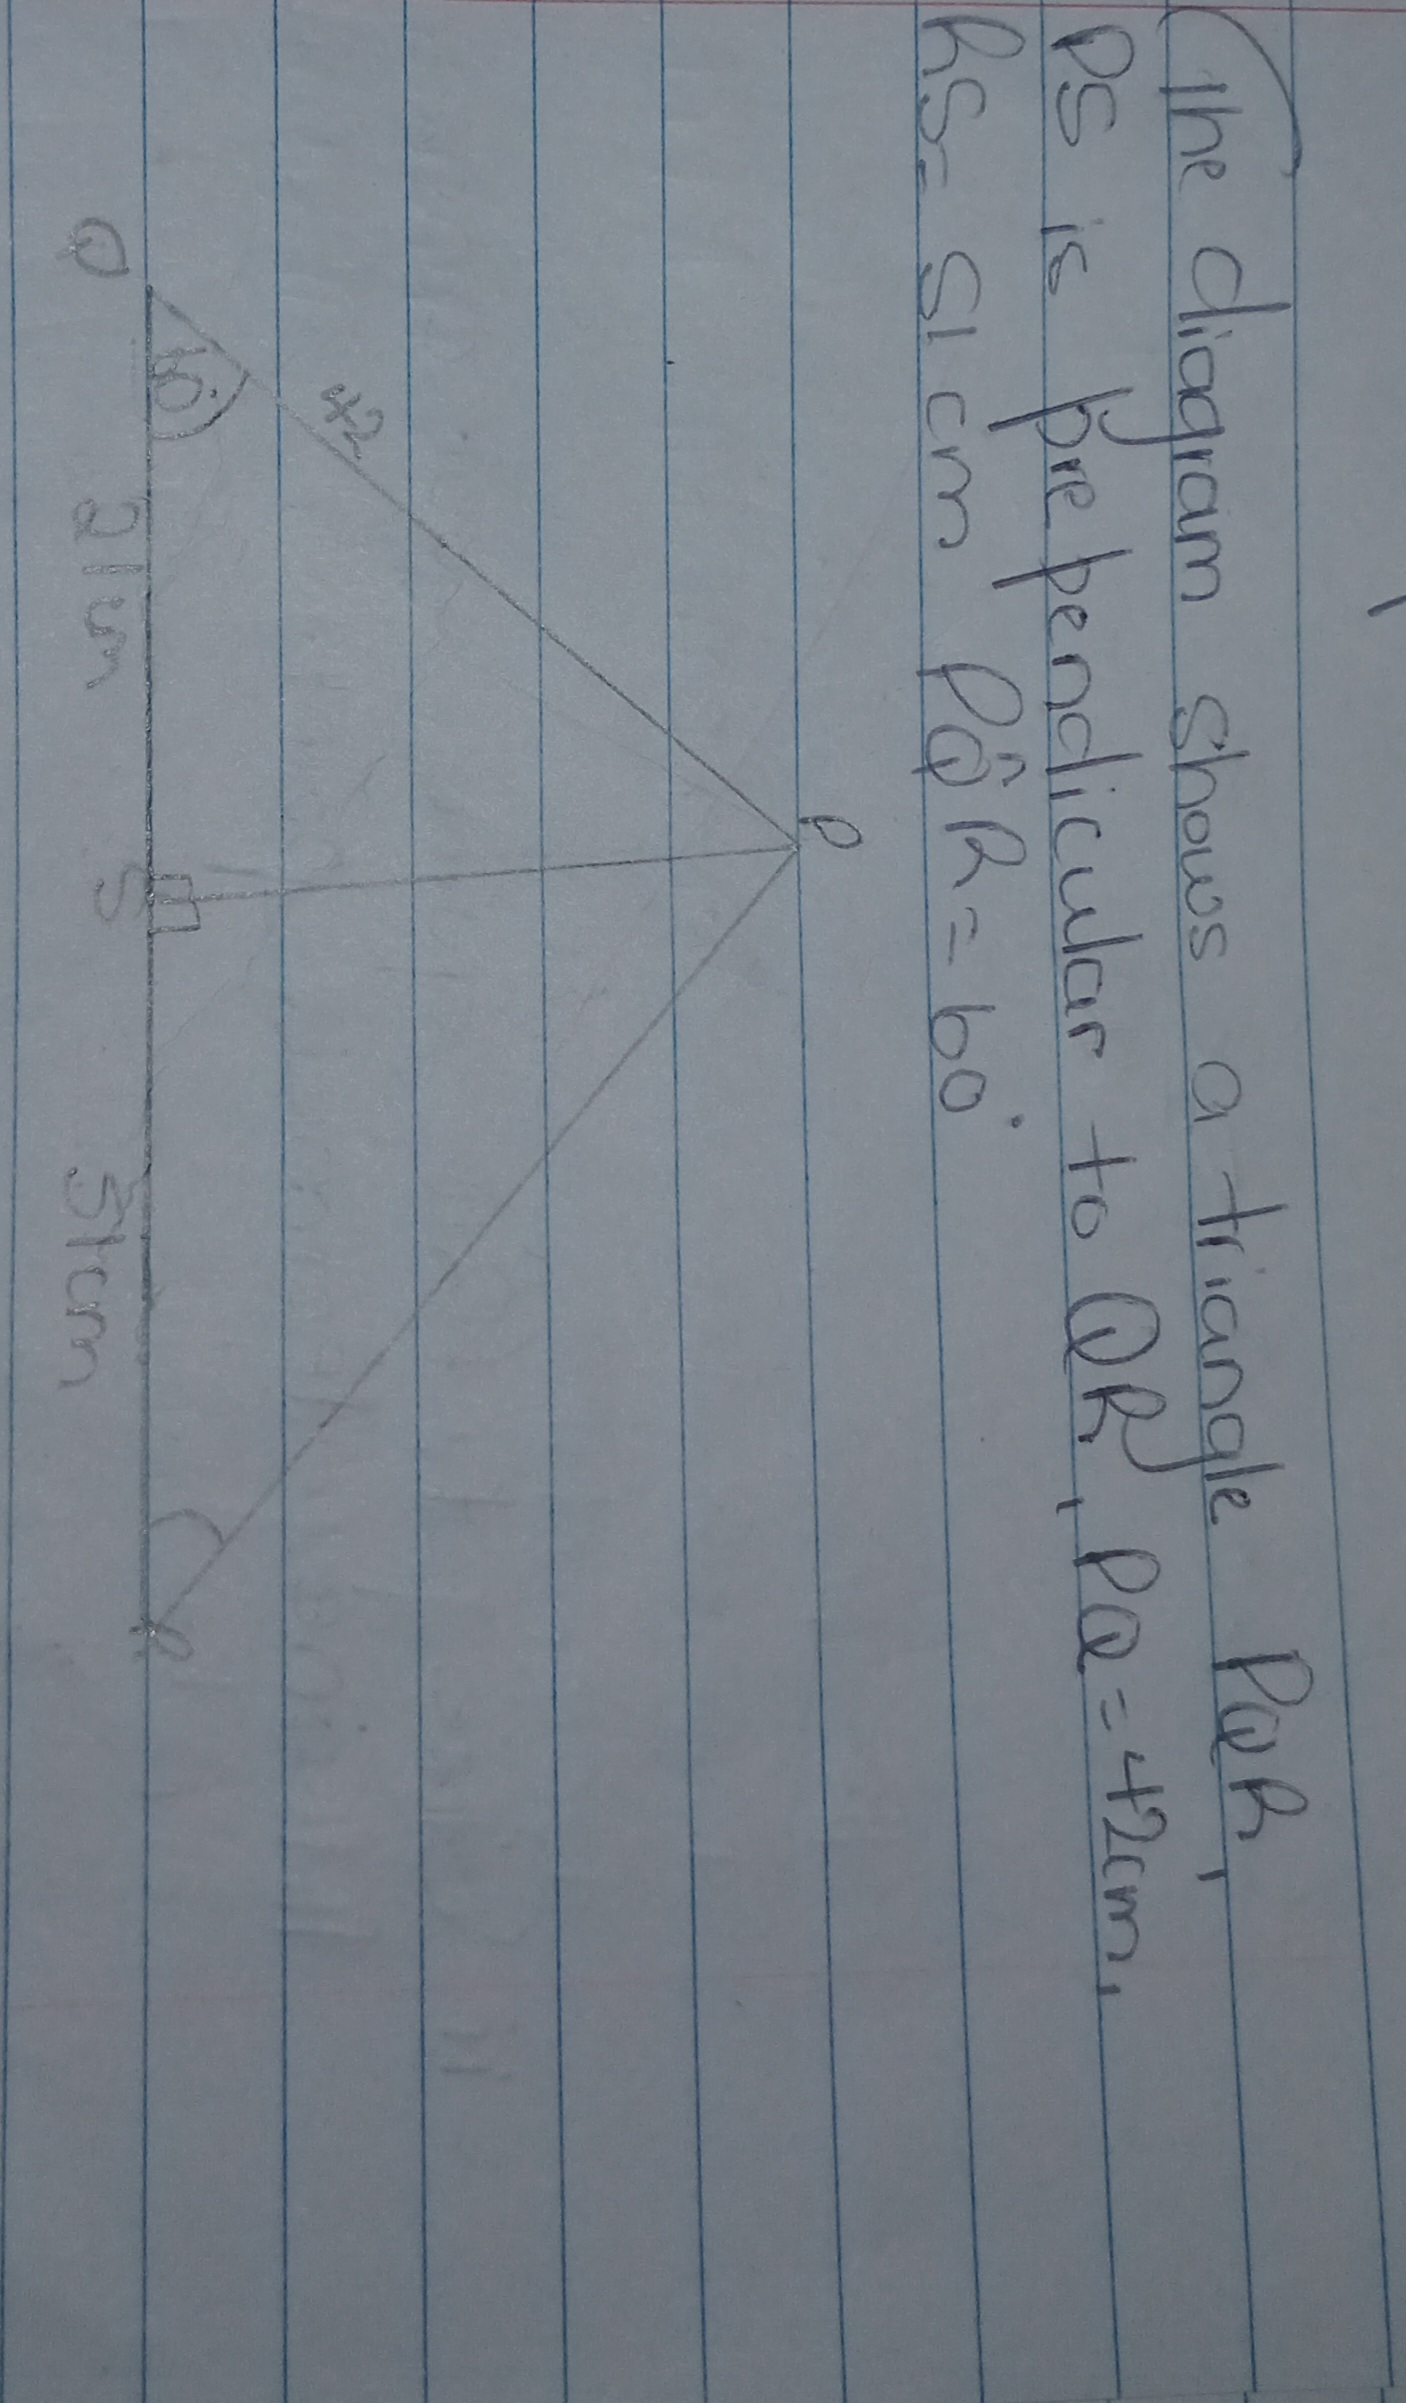 The diagram shows a triangle PQR,
PS is prependicular to QR, PQ = 42cm,
RS = 51 cm PQ̂R = 60°
P
42
60°
Q
21cm
S
51cm
R